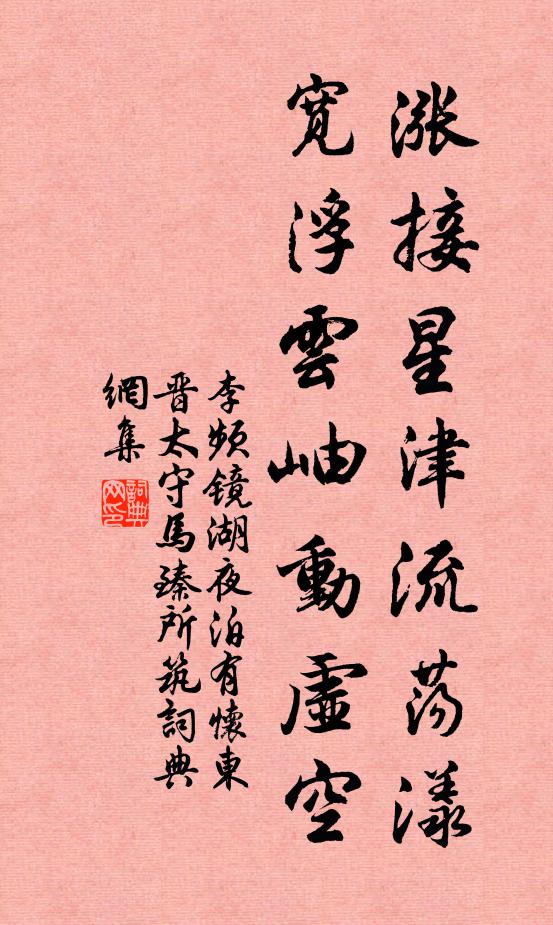 漲接星津流蕩漾
寬浮雲岫動虛空
李頻鏡湖夜泊有懷東
晋太守馬臻所筑詞典
網集
詞典
网印